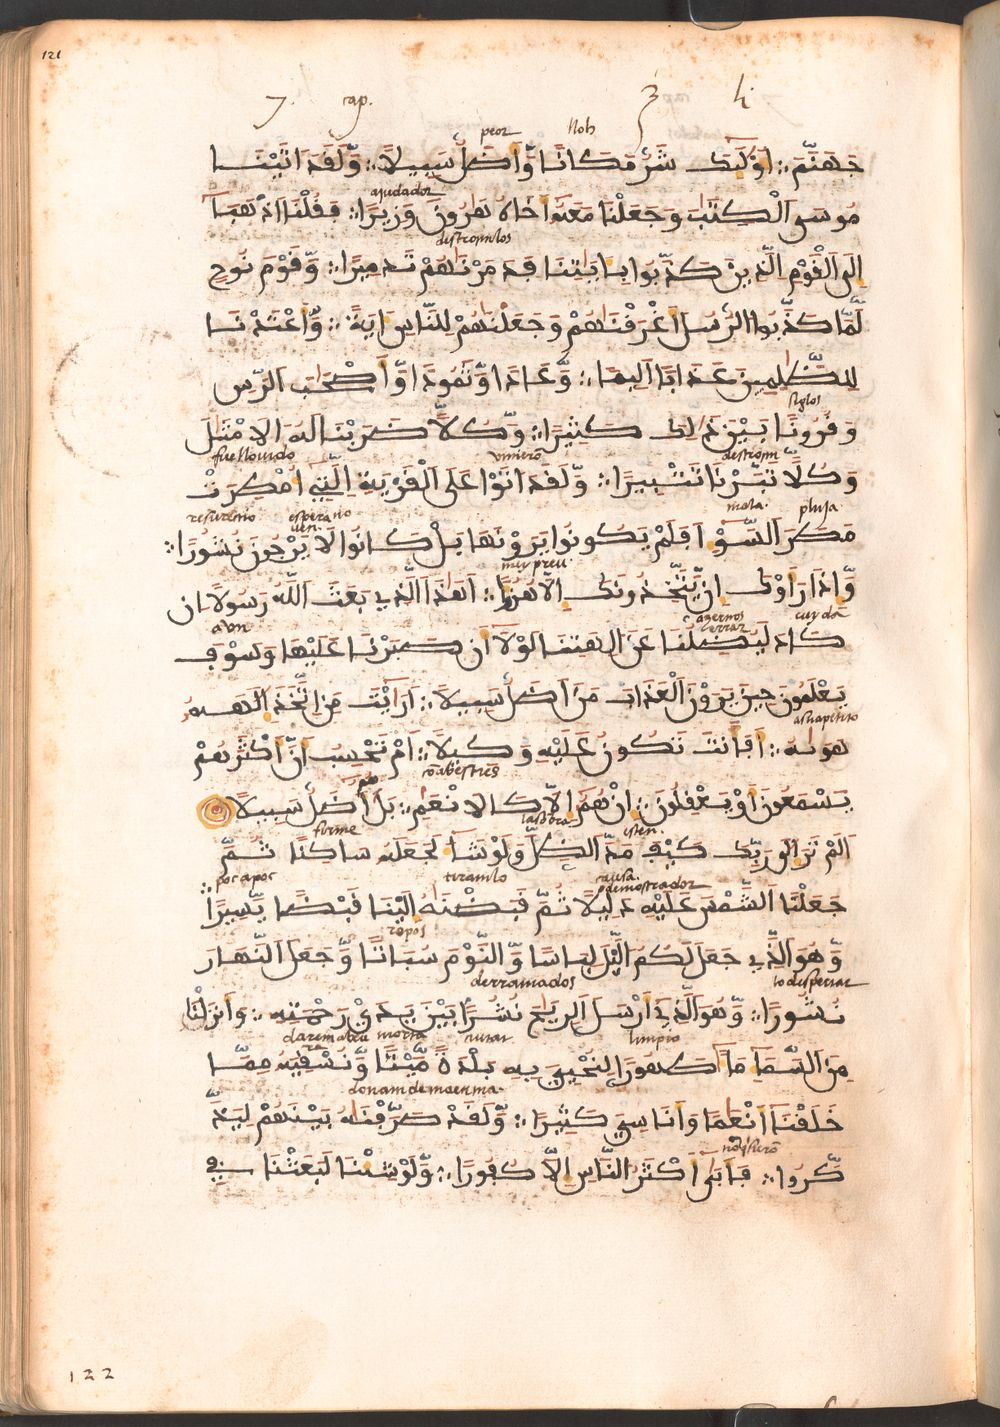 121
7. cap. 3 li
peor lloh
جَهَنَّمَ أُوْلَٰٓئِكَ شَرٌّ مَّكَانًا وَّأَضَلُّ سَبِيلًا وَّلَقَدَ اتَيْنَا
ajudador
مُوسَى الْكِتَٰبَ وَجَعَلْنَا مَعَهُۥ أَخَاهُ هَٰرُونَ وَزِيرًا فَقُلْنَا اَذْهَبَا
destrosimlos
إِلَى اَلْقَوْمِ الَّذِينَ كَذَّبُوا بِـَٔايَٰتِنَا فَدَمَّرْنَٰهُمْ تَدْمِيرًا وَّقَوْمَ نُوحٍ
لَّمَّا كَذَّبُوا الرُّسُلَ أَغْرَقْنَٰهُمْ وَجَعَلْنَٰهُمْ لِلنَّاسِ ءَايَةً وَّأَعْتَدْنَا
لِلظَّٰلِمِينَ عَذَابًا أَلِيمًا وَّعَادًا وَّثَمُودًا وَّأَصْحَٰبَ الرَّسِّ
siglos
وَقُرُونًا بَيْنَ ذَٰلِكَ كَثِيرًا وَّكُلًّا ضَرَبْنَا لَهُ الَامْثَٰلَ
fue llouido vinierõ destrosim
وَكُلًّا تَبَّرْنَا تَتْبِيرًا وَّلَقَدَ اتَوْا عَلَى الْقَرْيَةِ الَّتِي أُمْطِرَتْ
resuresio esperauan uen mala pluja
مَطَرَ السَّوْءِ أَفَلَمْ يَكُونُوا يَرَوْنَهَا بَلْ كَانُوا لَا يَرْجُونَ نُشُورًا
وَّإِذَا رَأَوْكَ إِنْ يَّتَّخِذُونَكَ إِلَّا هُزُؤًا أَهَٰذَا اَلَّذِي بَعَثَ اَللَّهُ رَسُولًا إِن
aun azernos errar cuyda
كَادَ لَيُضِلُّنَا عَنَ الِهَتِنَا لَوْلَا أَن صَبَرْنَا عَلَيْهَا وَسَوْفَ
يَعْلَمُونَ حِينَ يَرَوْنَ اَلْعَذَابَ مَنَ اَضَلُّ سَبِيلًا أَرَٰيْتَ مَنِ اتَّخَذَ إِلَٰهَهُ
asu apetito
هَوَىٰهُ أَفَأَنتَ تَكُونُ عَلَيْهِ وَكِيلًا أَمْ تَحْسِبُ أَنَّ أَكْثَرَهُمْ
cõ abesties
يَسْمَعُونَ أَوْ يَعْقِلُونَ إِنْ هُمْ إِلَّا كَالَانْعَٰمِ بَلْ هُمْ أَضَلُّ سَبِيلًا
firme laso͂bra esten.
أَلَمْ تَرَ إِلَىٰ رَبِّكَ كَيْفَ مَدَّ الظِّلَّ وَلَوْ شَآءَ لَجَعَلَهُ سَاكِنًا ثُمَّ
poc apoc tiramlo causa. demostrador
جَعَلْنَا اَلشَّمْسَ عَلَيْهِ دَلِيلًا ثُمَّ قَبَضْنَٰهُ إِلَيْنَا قَبْضًا يَّسِيرًا
repos
وَّهُوَ الَّذِي جَعَلَ لَكُمُ الَّيْلَ لِبَاسًا وَّالنَّوْمَ سُبَاتًا وَّجَعَلَ اَلنَّهَارَ
derramados lo despertar
نُشُورًا وَّهُوَ الَّذِي أَرْسَلَ اَلرِّيَٰحَ نُشُرًا بَيْنَ يَدَيْ رَحْمَتِهِ وَأَنزَلْنَا
morta limpio
مِنَ اَلسَّمَآءِ مَآءً طَهُورًا لِنُحْيِيَ بِهِ بَلْدَةً مَّيْتًا وَّنُسْقِيَهُ مِمَّا
خَلَقْنَا أَنْعَٰمًا وَأَنَاسِيَّ كَثِيرًا وَّلَقَدْ صَرَّفْنَٰهُ بَيْنَهُمْ لِيَذَّ
كَّرُوا فَأَبَىٰ أَكْثَرُ النَّاسِ إِلَّا كُفُورًا وَّلَوْ شِئْنَا لَبَعَثْنَا فِي
122